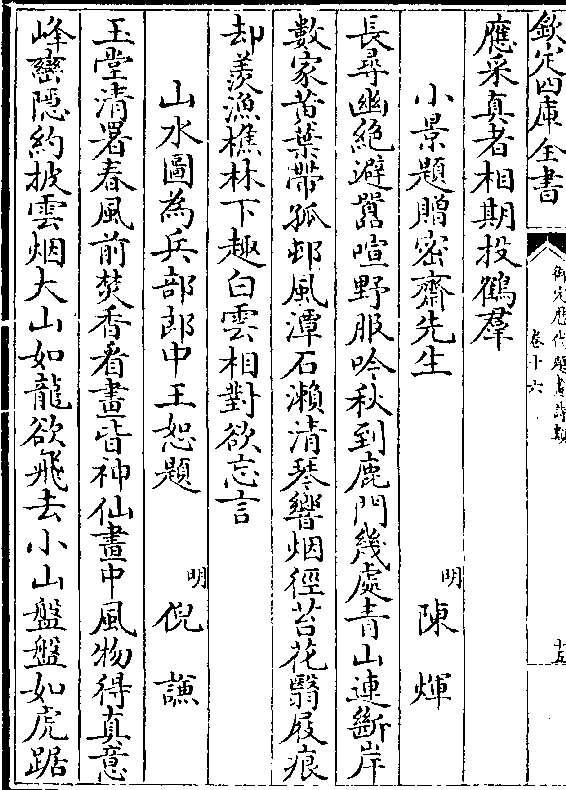 欽定四庫全書
御定歴代題畫詩類
卷十六
十五
應采真者相期投鶴羣
小景題贈密齋先生
明
陳煇
長尋幽絶避嚣喧野服吟秋到鹿門幾處青山連斷岸
數家黄葉帶孤邨風潭石瀨清琴響烟徑苔花翳屐痕
却羨漁樵林下趣白雲相對欲忘言
山水圖為兵部郎中王恕題
明
倪謙
玉堂清署春風前焚香看畫皆神仙畫中風物得真意
峰巒隱約披雲烟大山如龍欲飛去小山盤盤如虎踞